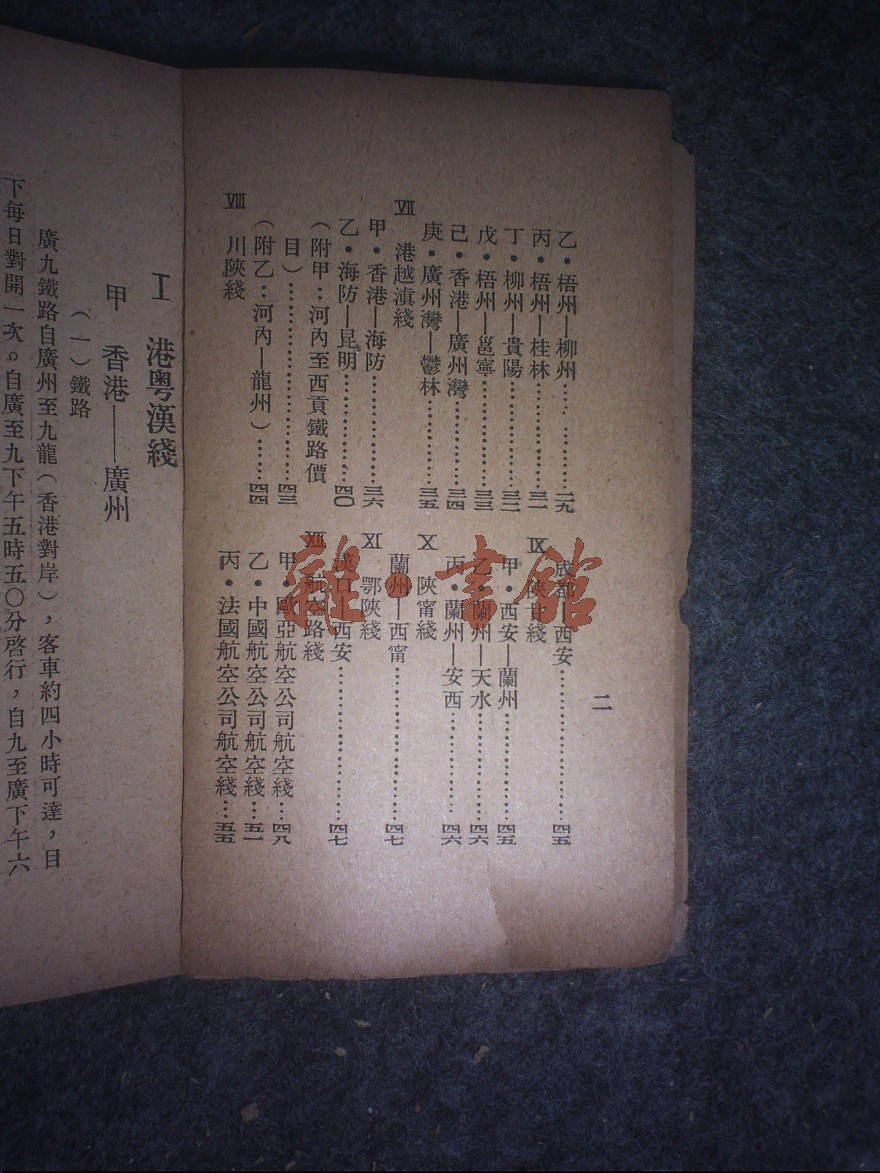 二
乙•梧州—柳州……………二九
丙•梧州—桂林……………三一
丁•柳州—貴陽……………三二
戊•梧州—邕寧……………三三
己•香港—廣州灣……………三四
庚•廣州灣—鬱林……………三五
Ⅶ 港越滇綫
甲•香港—海防……………三六
乙•海防—昆明……………四〇
(附甲：河內至西貢鐵路價
目)……………四三
(附乙：河內—龍州)……四四
Ⅷ 川陝綫
成都—西安……………四五
Ⅸ 陝甘綫
甲•西安—蘭州……………四五
乙•蘭州—天水……………四六
丙•蘭州—安西……………四六
Ⅹ 陝甯綫
蘭州—西甯……………四七
Ⅺ 鄂陝綫
漢口—西安……………四七
Ⅻ 航空路綫
甲•歐亞航空公司航空綫…四八
乙•中國航空公司航空綫…五一
丙•法國航空公司航空綫…五五
Ⅰ 港粵漢綫
甲 香港——廣州
(一)鐵路
廣九鐵路自廣州至九龍(香港對岸)，客車約四小時可達，目
下每日對開一次。自廣至九下午五時五〇分啓行，自九至廣下午六
龍•書館